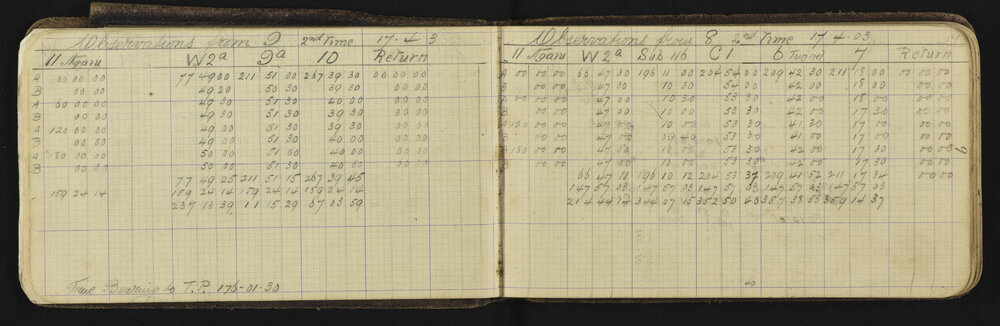 Observations from 9 2nd Time 17.4 3
11 Ngaru W2a 9a 10 Return
A 00 00 00 77 49 00 211 51 00 267 39 30 00 00 00
B 00 00 49 20 50 30 39 30 00 00
A 60 00 00 49 30 51 30 40 00 00 00
B 00 00 49 30 51 30 39 30 00 00
A 120 00 00 49 00 51 30 39 30 00 00
B 00 00 49 00 51 30 40 00 00 00
A 180 00 00 50 00 51 00 40 00 00 00
B 00 00 50 00 51 30 40 00 00 00
77 49 25 211 51 15 267 39 45
159 24 14 159 24 14 159 24 14 159 24 14
237 13 39 11 15 29 67 03 59
True Bearing to T.P. 176-01-30
Observations from 8 2nd Time 17.4.03
11 Ngaru W2a Sub No C1 6 7 Return
A 00 00 00 66 47 30 196 11 00 204 54 00 209 42 30 211 18 00 00 00 00
B 00 00 47 30 10 30 54 00 42 00 18 00 00 00
A 00 00 47 00 10 30 53 30 42 00 18 00 00 00
B 00 00 47 00 10 30 53 30 42 00 17 30 00 00
A 120 00 00 10 00 53 30 41 30 17 00 00 00
B 00 00 47 00 53 30 41 00 17 00 00 00
A 180 00 00 47 00 53 30 42 00 17 30 00 00
B 00 00 47 00 10 00 53 30 42 00 17 30 00 00
66 47 11 196 10 12 204 53 37 209 41 52 211 17 34 00 00
147 57 03 147 57 03 147 57 03 147 57 03 147 57 03
214 44 14 344 07 15 352 50 40 357 38 55 359 14 37